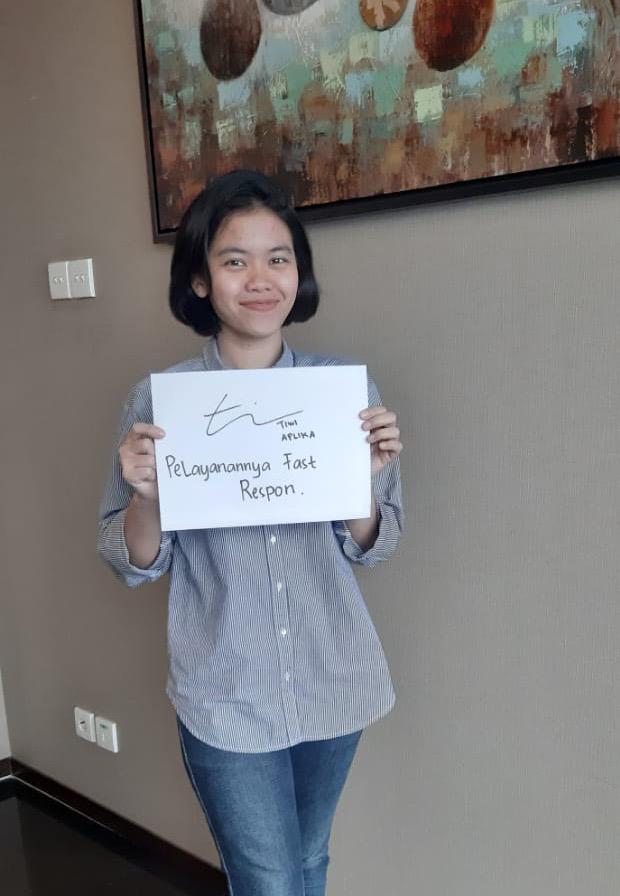 TIWI
APLIKA
PeLayanannya Fast
Respon.